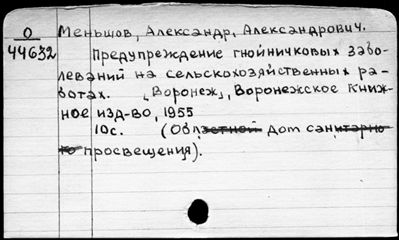 О Меньшов, Александр, Александрович.
44632 Предупреждение гнойничковых забо-
леваний на сельскохозяйственных ра-
ботах. [Воронеж], Воронежское книж-
ное изд-во, 1955
10с. (Облзетной дом санитарно
го просвещения).